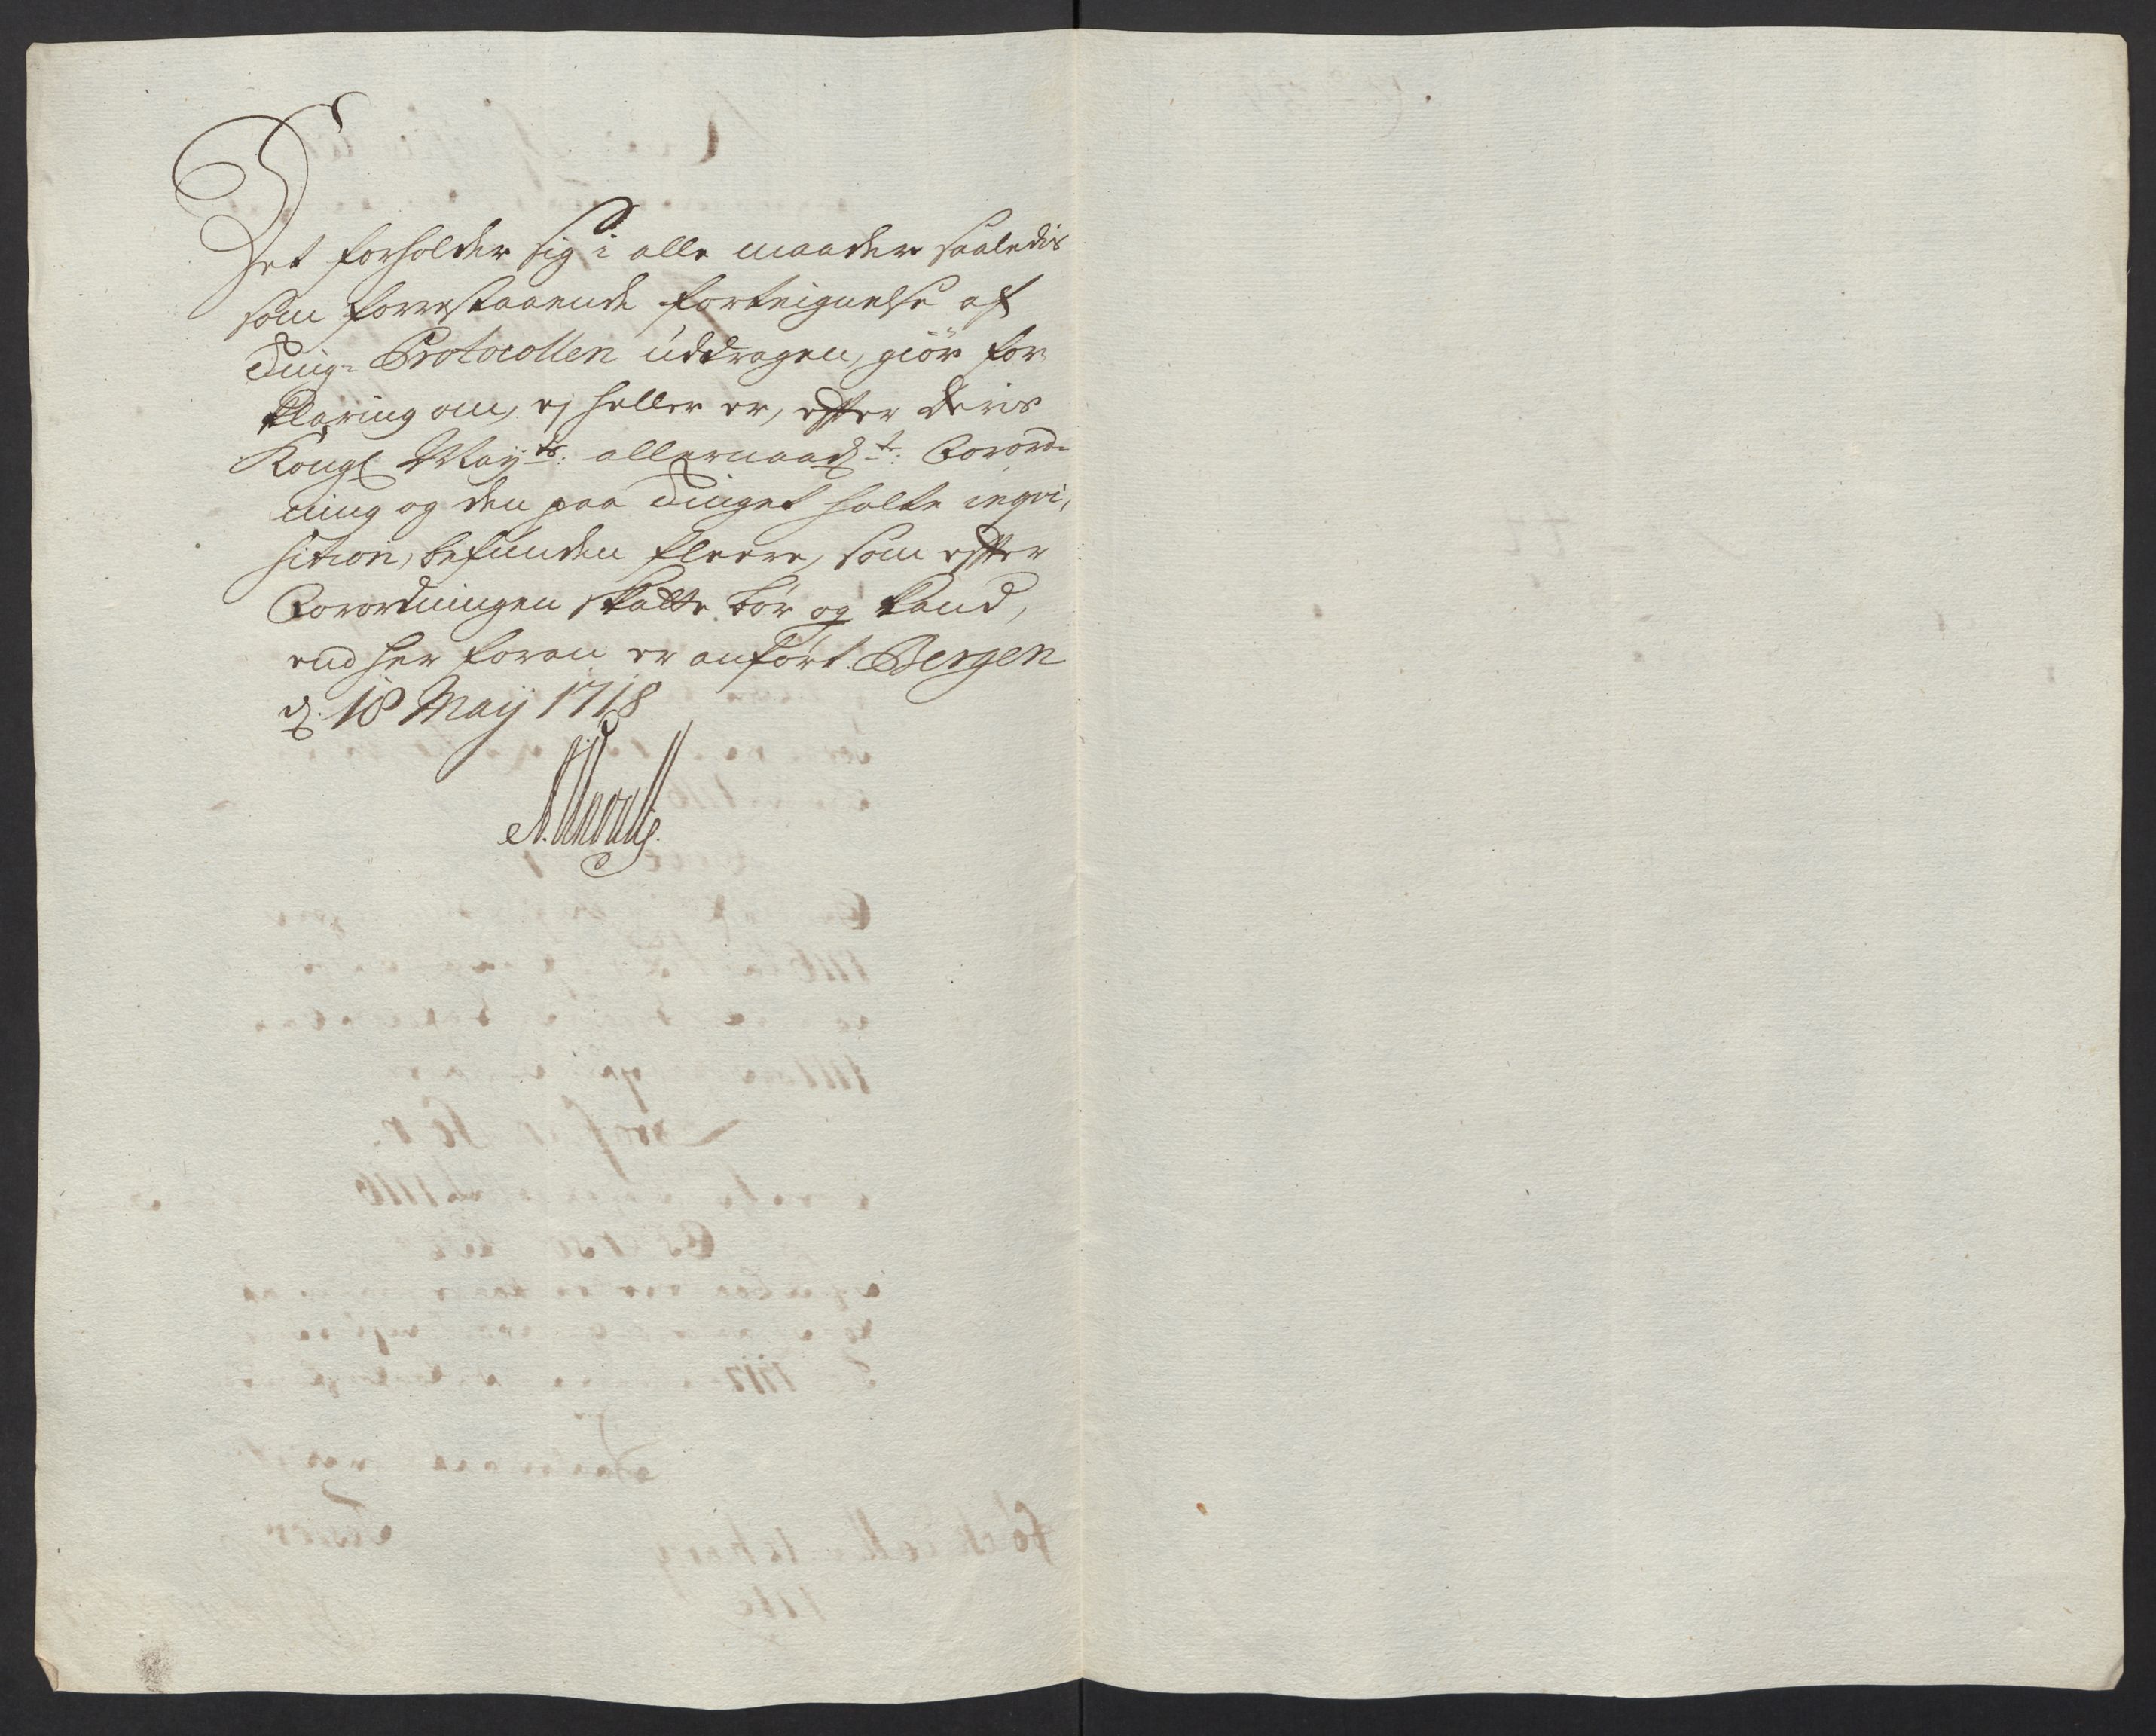 Det forholder sig i alle maader saaledis
som forrestaaende forteignelse af
Ting- Protocollen uddragen, giør for
klaring om, ej heller er, efter Deris
Kongl May:ts: allernaad:ste: Forord-
ning og den paa Tinget holte inqvi,
sition, befunden fleere, som efter
Forordningen skatte bør og kand,
end her foran er anført. Bergen
d. 18 Maij 1718